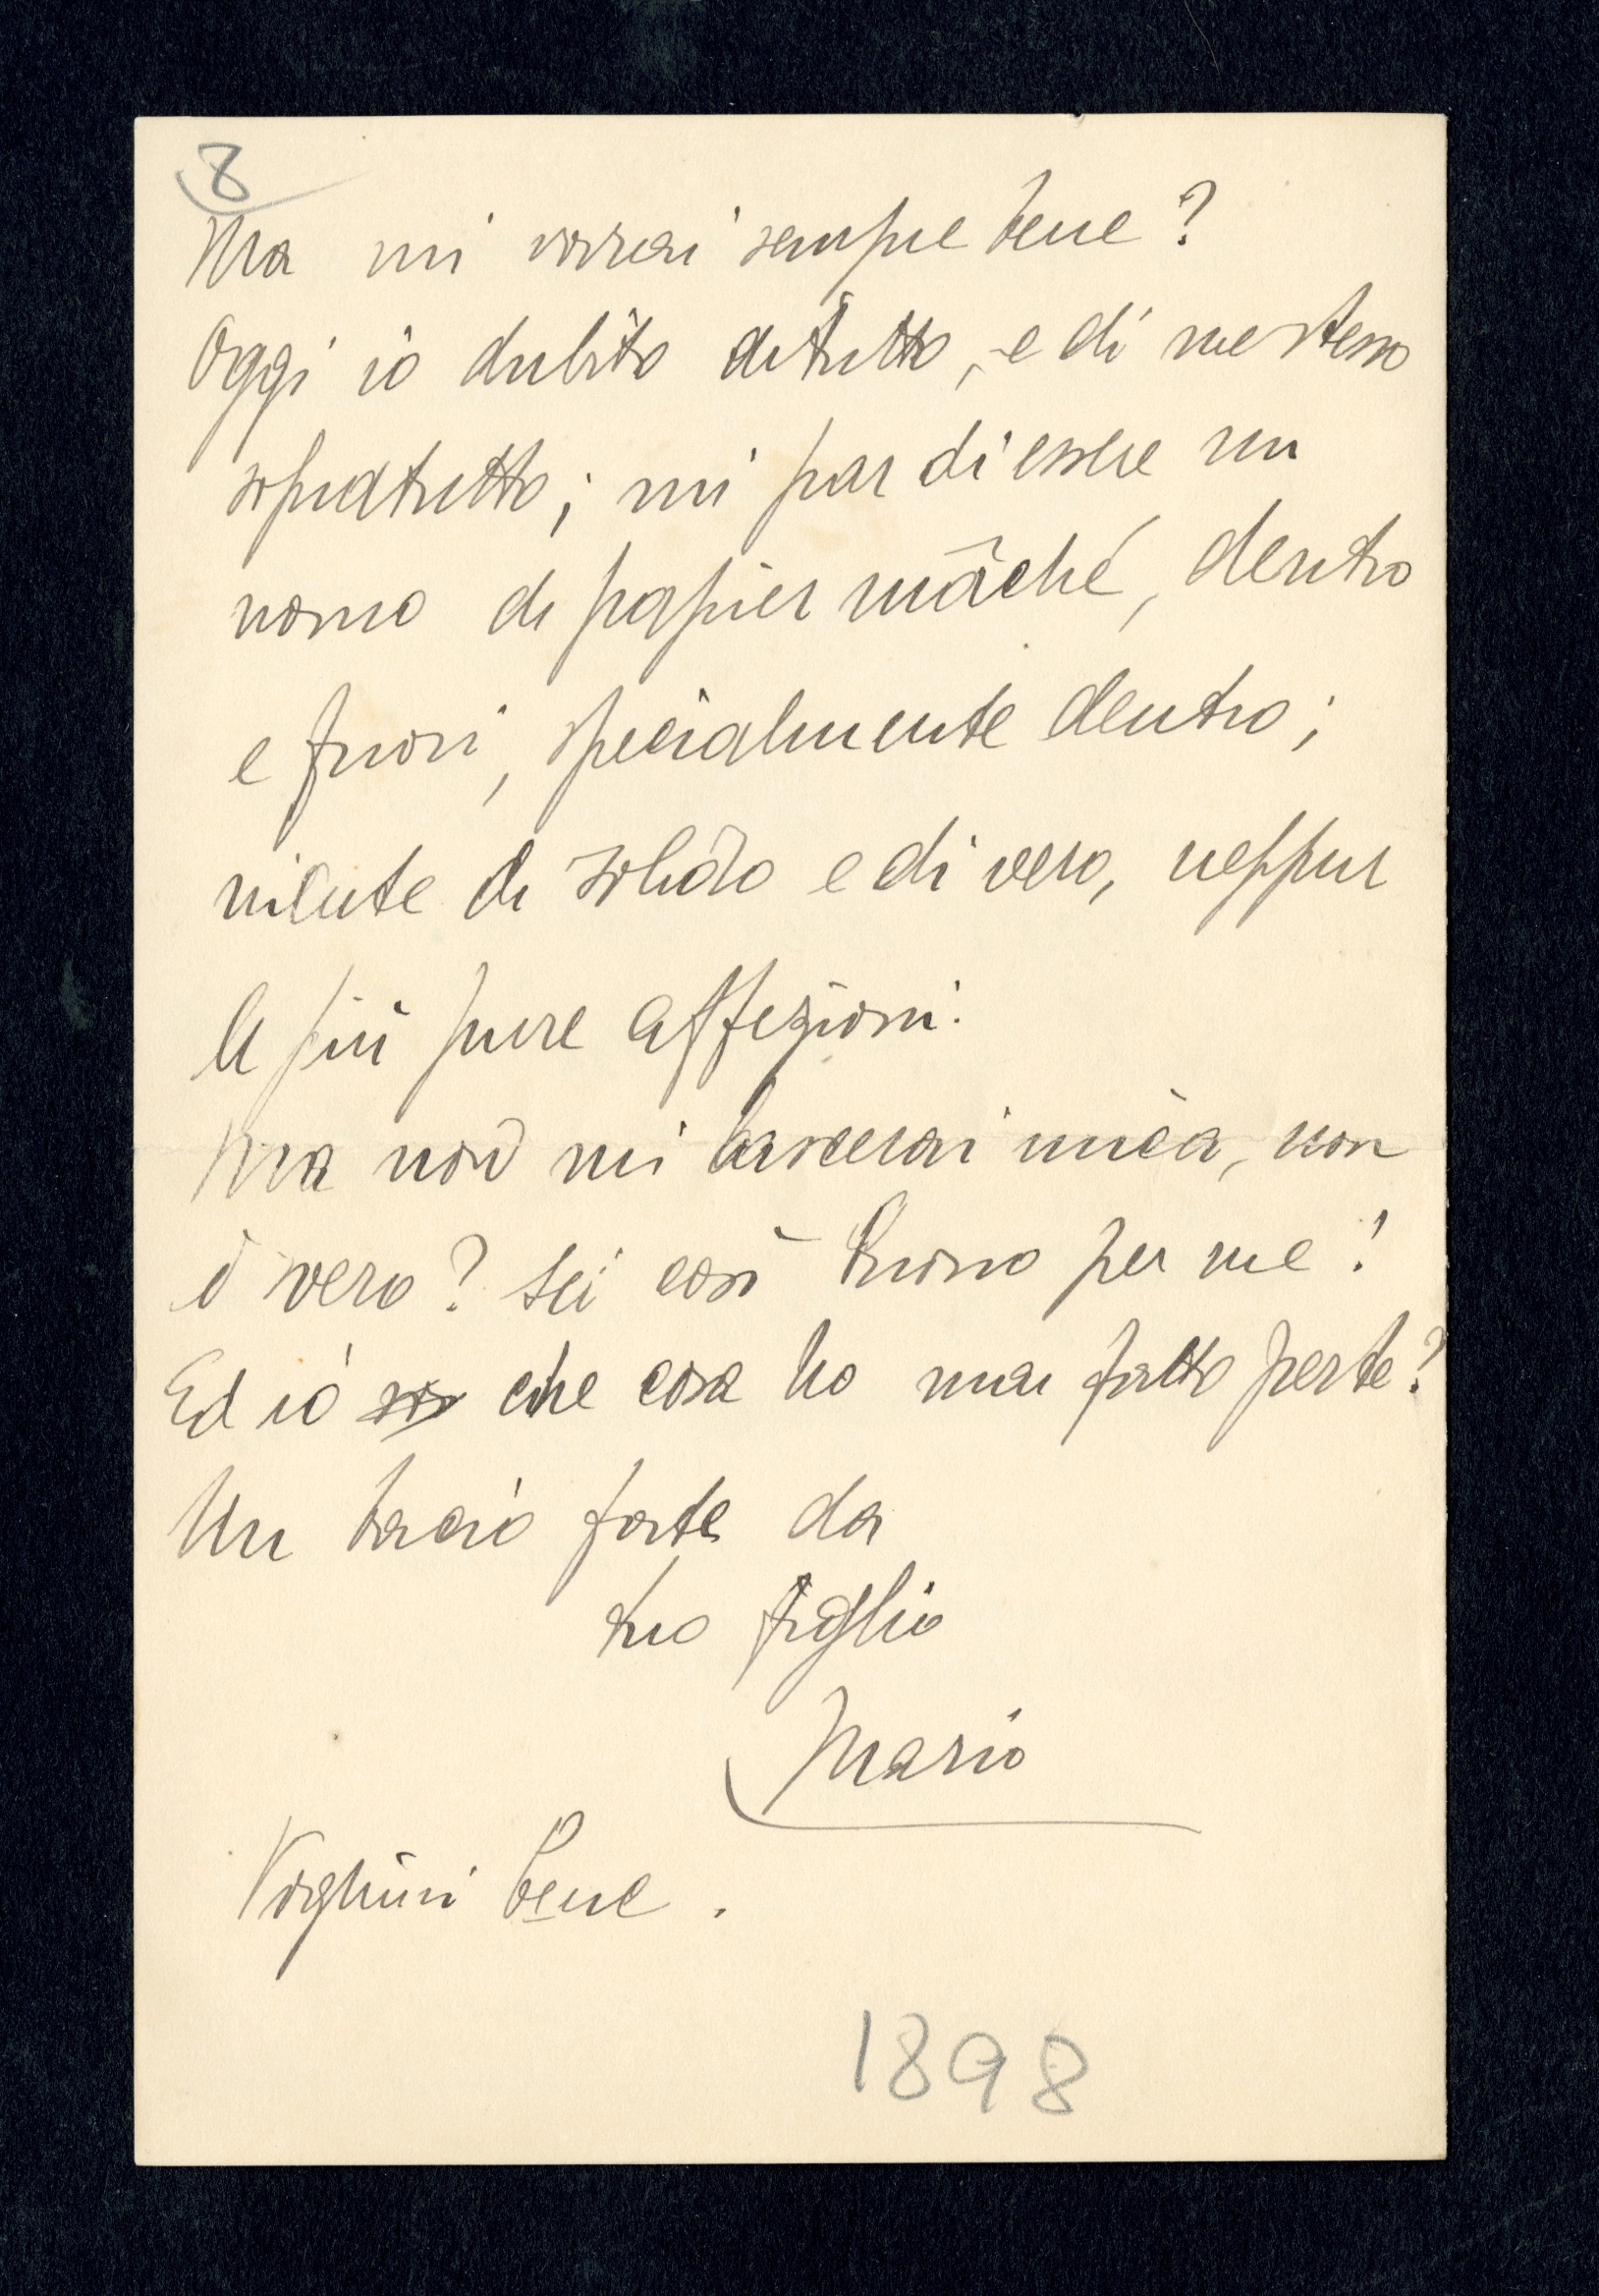 8
Ma mi vorrai sempre bene?
Oggi io dubito di tutto, e di me stesso
sopratutto; mi par di essere un
uomo di papier mâché, dentro
e fuori, specialmente dentro;
niente di solido e di vero, neppur
le più pure affezioni.
Ma non mi lascerai mica, non
è vero? Sei così buono per me!
Ed io che cosa ho mai fatto per te?
Un bacio forte da
tuo figlio
Mario
Voglimi bene.
1898